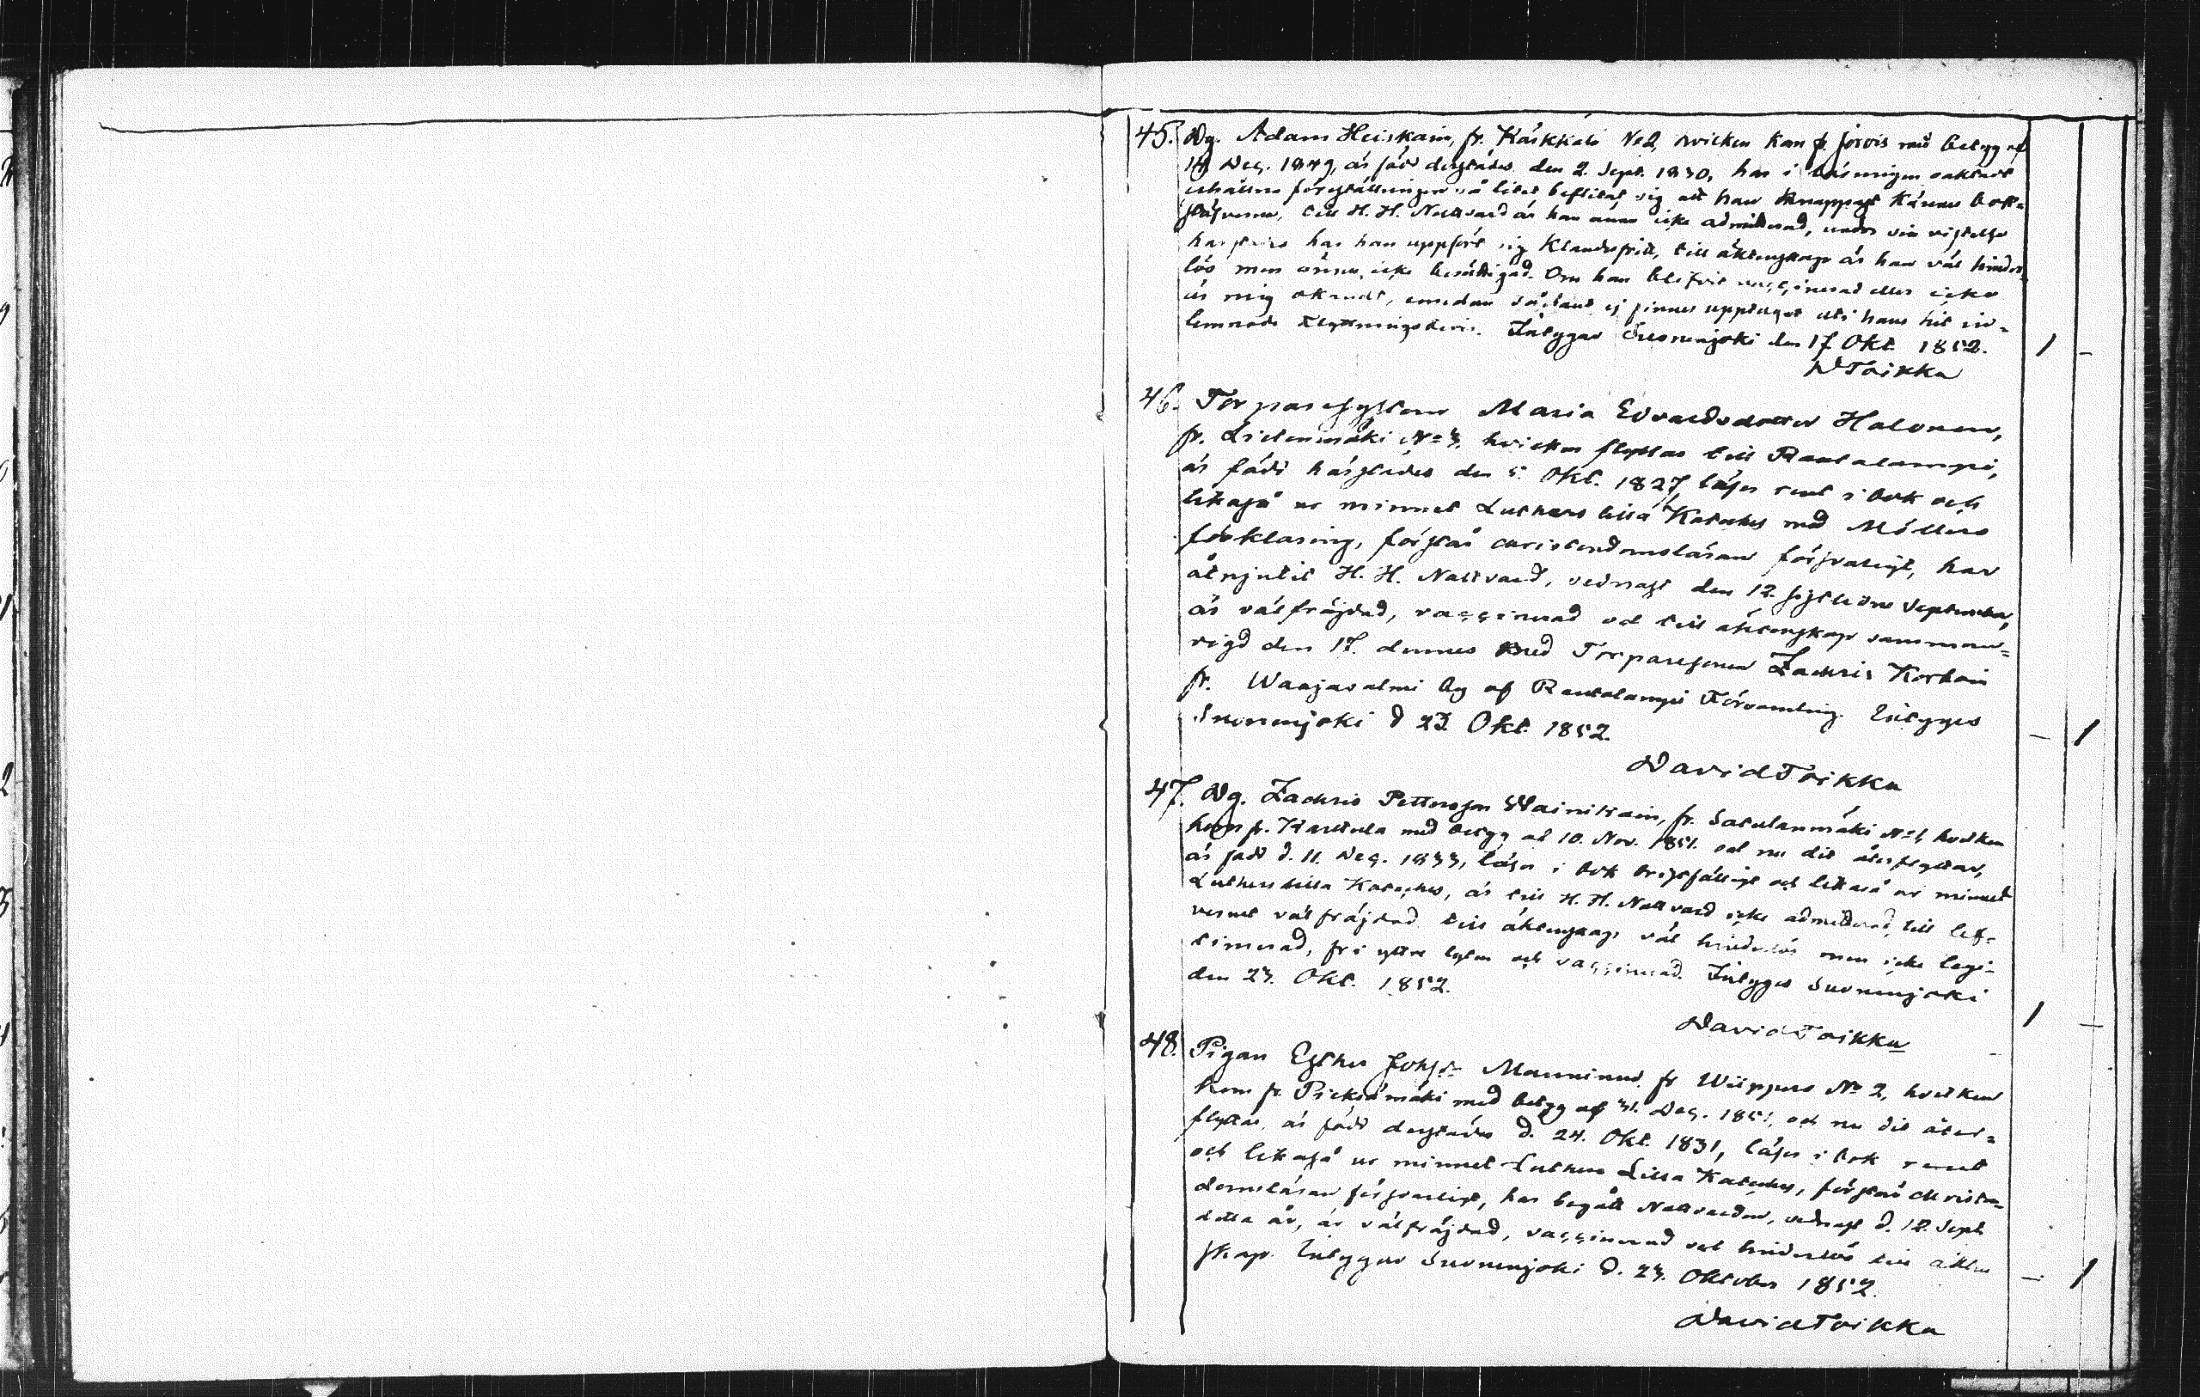 45. Dg. Adam Heiskain, fr. Kärkkälä No 2, hvilken kom fr. Jorois med betyg af
18 Dec. 1849, är född derstädes den 2. Sept. 1830, har i läsningen oaktadt
erhållne föreställningar så litet beflitat sig att han knappast känner bok-
stäfverna, till H. H. Nattvard är han ännu icke admitterad, under sin vistelse
härstädes har han uppfört sig klanderfritt, till äktenskap är han väl hinder-
lös men ännu icke berättigad. Om han blifvit vaccinerad eller icke
är mig okändt, emedan sådant ej finnes upptaget uti hans hit in-
lemnade Flyttningsbevis. Intygar Suonenjoki den 17 Okt. 1852. 1 –
DToikka
46. Torparesystern Maria Edvardsdotter Halonen,
fr. Lietenmäki No 3, hvilken flyttar till Rautalampi,
är född härstädes den 5. Okt. 1827, läser rent i bok och
likaså ur minnet Luthers lilla Kateches med Möllers
förklaring, förstår christendomsläran försvarligt, har
åtnjutit H. H. Nattvard, sednast den 12. sistledne September,
är välfräjdad, vaccinerad och till äktenskap samman-
vigd den 17. dennes med Torparesonen Zachris Korhoin
fr. Waajasalmi by af Rautalampi Församling. Intygas
Suonenjoki d 23 Okt. 1852. – 1
David Toikka
47. Dg. Zachris Pettersson Wainikain, fr. Sarulanmäki No 1, hvilken
kom fr. Karttula med betyg af 10. Nov. 1851. och nu dit återflyttar,
är född d. 11. Dec. 1833, läser i bok bristfälligt och likaså ur minnet
Luthers lilla Kateches, är till H. H. Nattvard icke admitterad, till lef-
vernet välfräjdad till äktenskap väl hinderlös men icke legi-
timerad, fri yttre lyten och vaccinerad. Intygas Suonenjoki
den 23. Okt. 1852. 1 –
David Toikka
48. Pigan Esther Johsdr Manninen fr Wiipperо No 2, hvilken
kom fr. Pieksämäki med betyg af 31. Dec. 1851, och nu dit åter-
flyttar, är född derstädes d. 24. Okt. 1831, läser i bok rent
och likaså ur minnet Luthers Lilla Kateches, förstår christen-
domsläran försvarligt, har begått Nattvarden, sednast d. 12. Sept.
detta år, är välfräjdad, vaccinerad och hinderlös till äkten
skap. Intygar Suonenjoki d. 23. Oktober 1852. – 1
David Toikka